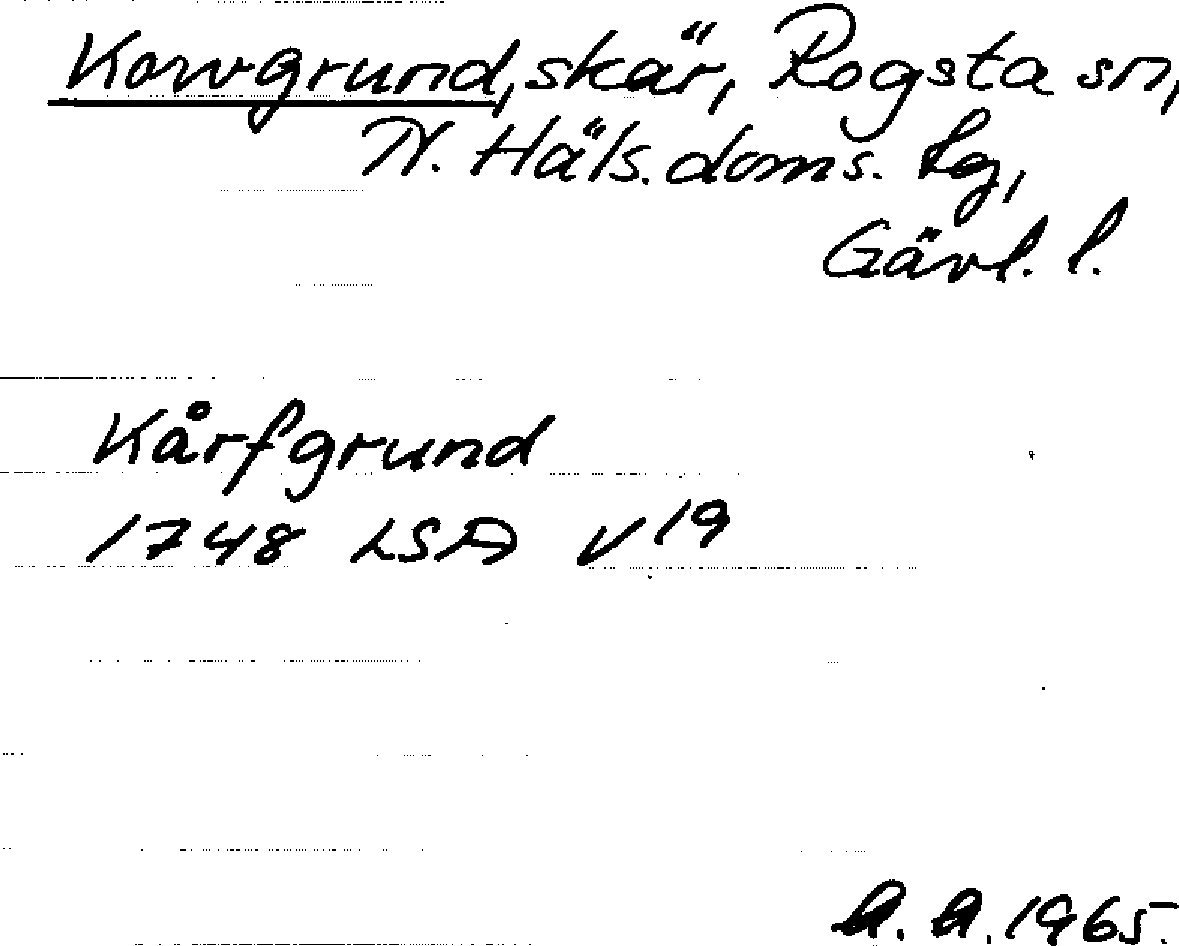 Korvgrund, skär, Rogsta sn,
N. Häls. doms. lg,
Gävl. l.
Kårfgrund
1748 LSA V 19
A. A. 1965.